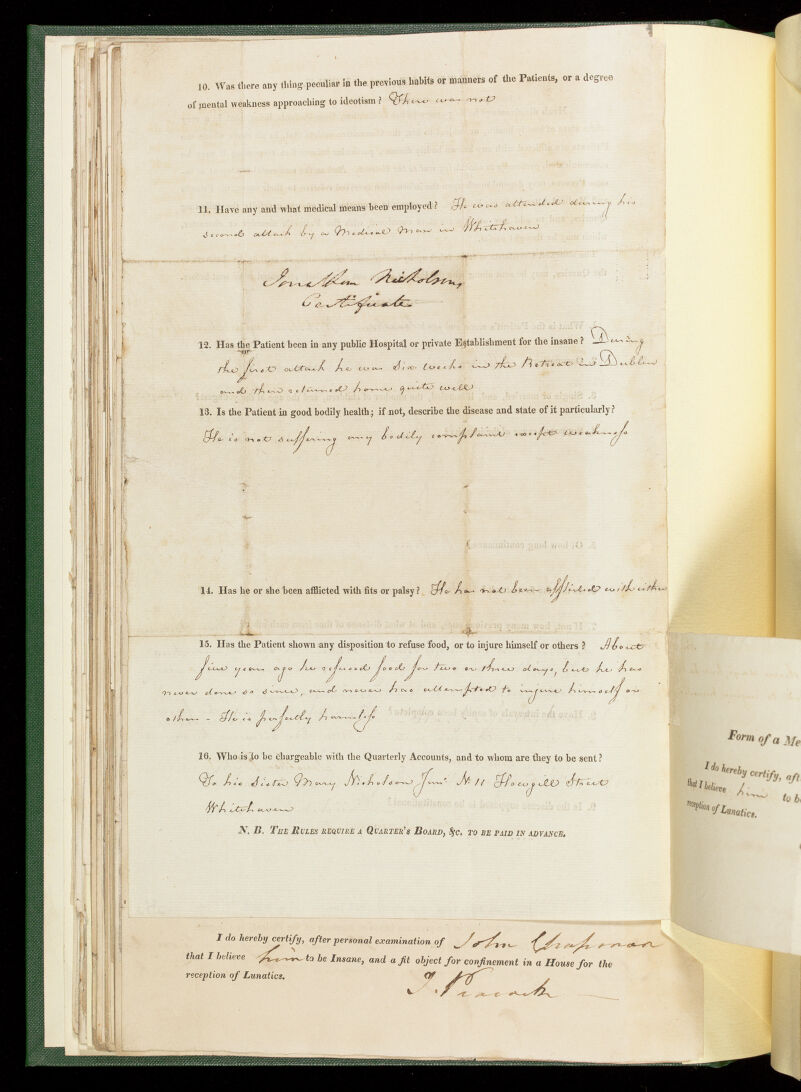 10. Was there any thing peculiar in the previous habits or manners of the Patients, or a degree
of mental weakness approaching to ideotism ? There was not
11. Have any and what medical means been employed ? He was attended during his
second attack by a Medical Man in Whitehaven
Jonathan Nicholsons
Certificate
12. Has the Patient been in any public Hospital or private Establishment for the insane ? During
the first attack he was six weeks in the Retreat in Dublin
and then returned home quite well
13. Is the Patient in good bodily health; if not, describe the disease and state of it particularly?
He is not suffering any bodily complaint except weakness
14. Has he or she been afflicted with fits or palsy? He has not been afflicted with either
15. Has the Patient shown any disposition to refuse food, or to injure himself or others ? About
five years ago he refused food for two or three days, but he has
never done so since, and never has attempted to injure himself or
others - He is perfectly harmless
16. Who is to be chargeable with the Quarterly Accounts, and to whom are they to be sent?
To his Sister Mary Nicholson Junr No 11 Howgill Street
Whitehaven
N. B. THE RULES REQUIRE A QUARTER'S BOARD, &C. TO BE PAID IN ADVANCE.
I do hereby certify, after personal examination of John Chapman
that I believe him to be Insane, and a fit object for confinement in a House for the
reception of Lunatics.
J. Peacock
Form of a Me
I do hereby certify, aft
that I believe him to b
reception of Lunatics.